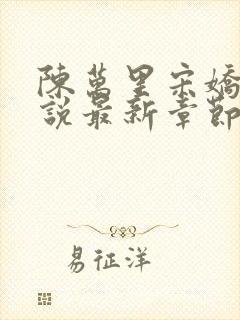 陳萬里宋嬌
說最新章節
易征洋